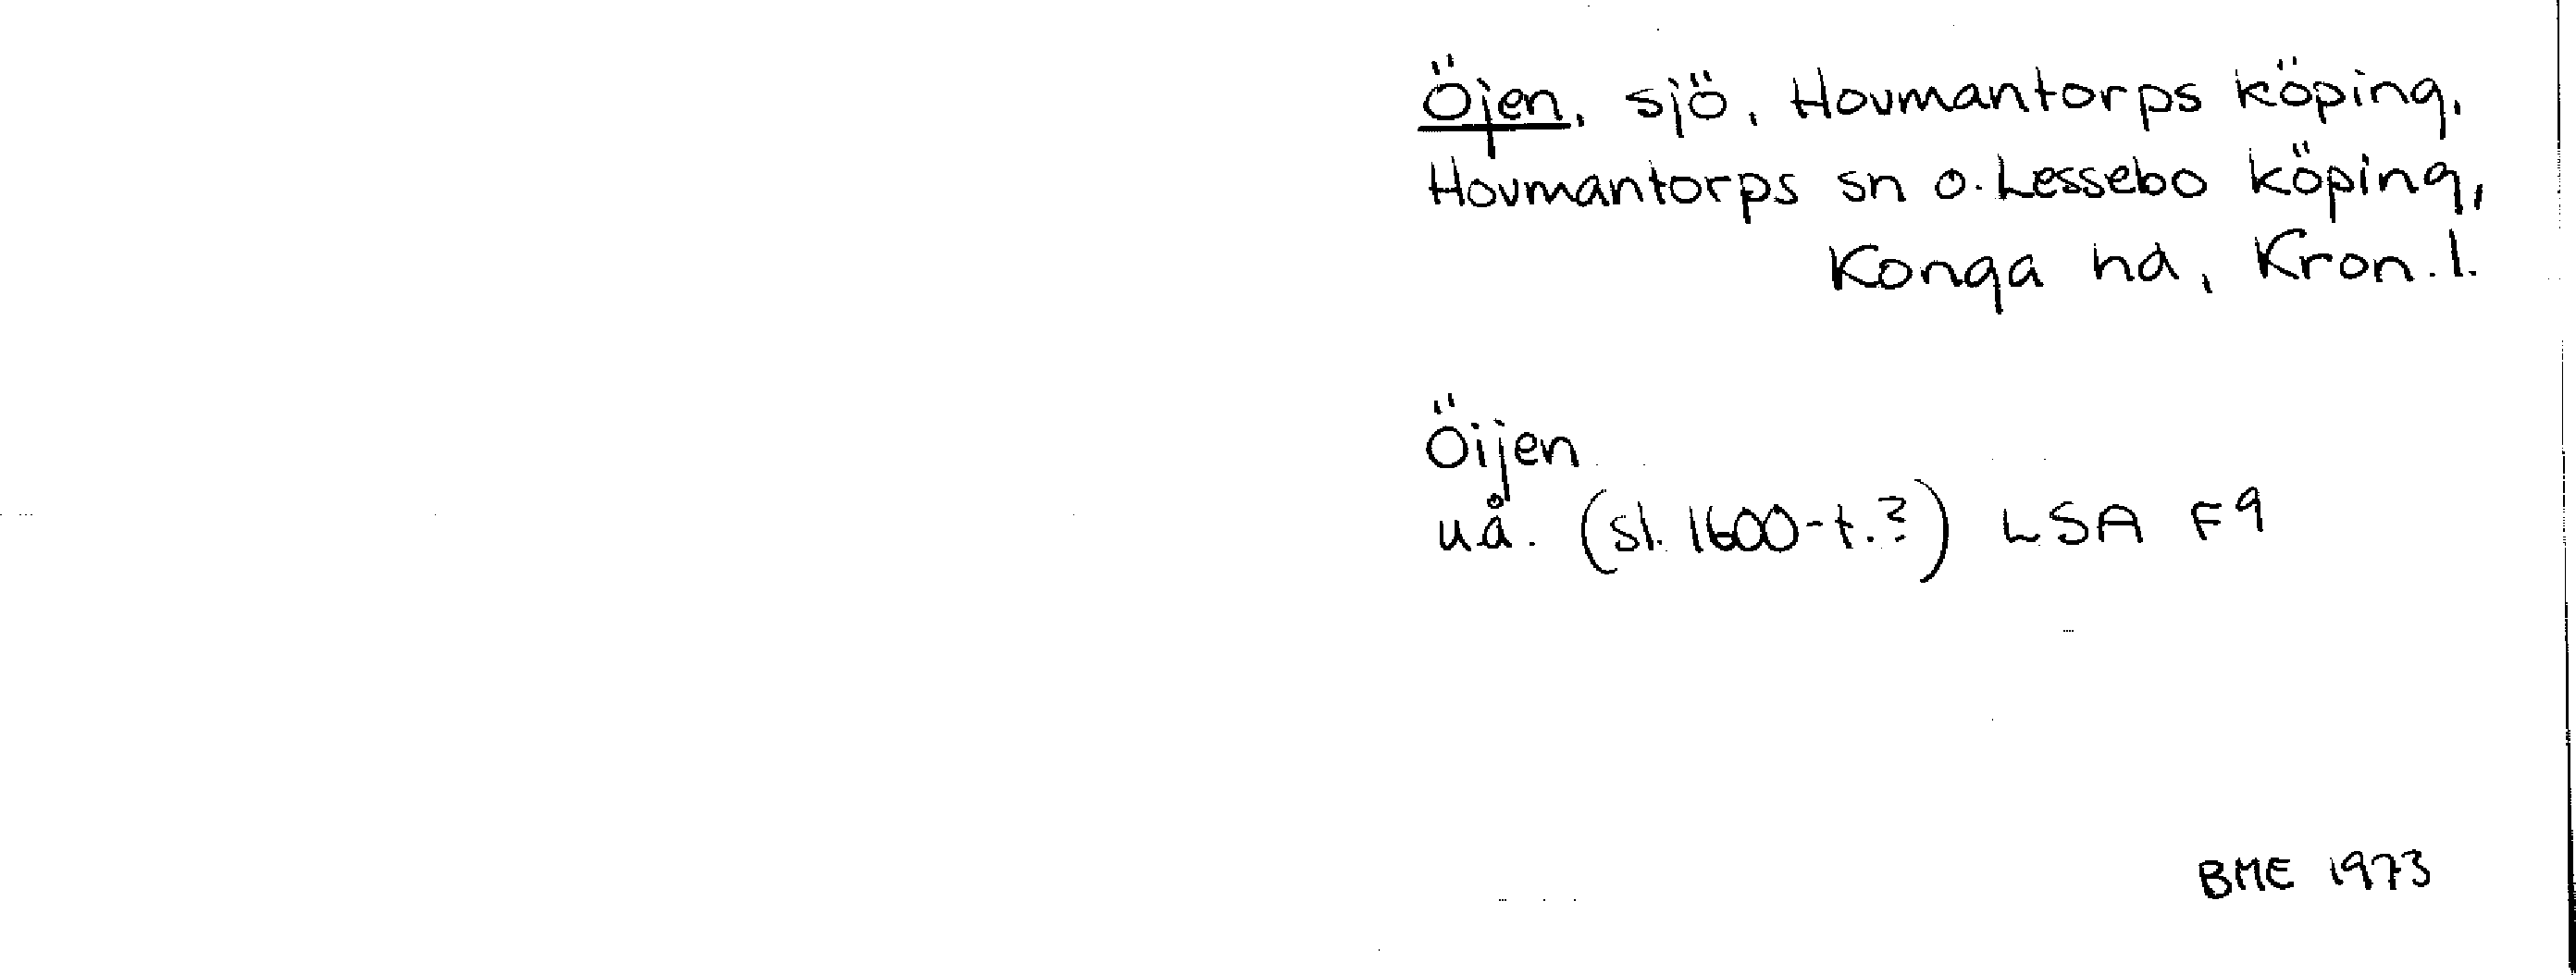 Öjen, sjö, Hovmantorps köping,
Hovmantorps sn o. Lessebo köping,
Konga hd, Kron. l.
Öijen
uå. (sl. 1600-t.?) LSA F9
BME 1973